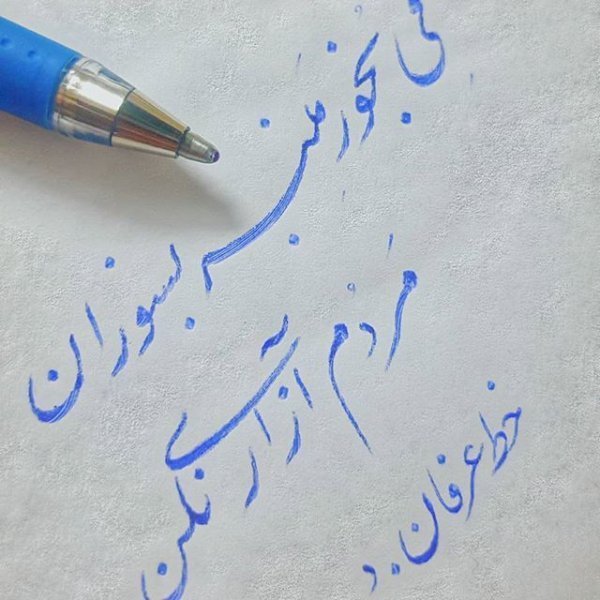 می بخور منبر بسوزان
مَردم آزاری نکن
خط عرفان.د